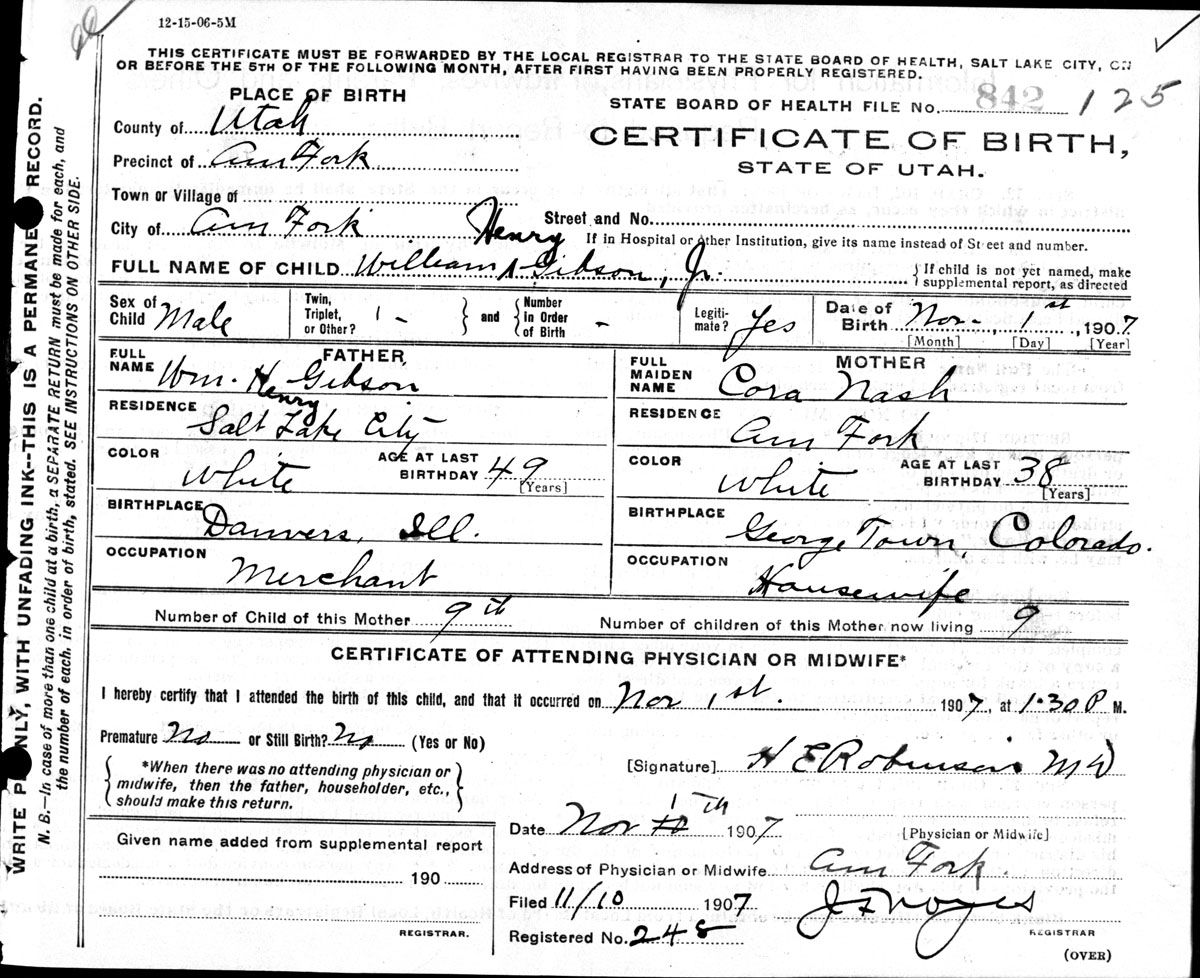 12-15-06-5M
THIS CERTIFICATE MUST BE FORWARDED BY THE LOCAL REGISTRAR TO THE STATE BOARD OF HEALTH, SALT LAKE CITY, ON
OR BEFORE THE 5TH OF THE FOLLOWING MONTH, AFTER FIRST HAVING BEEN PROPERLY REGISTERED.
PLACE OF BIRTH
STATE BOARD OF HEALTH FILE No. 842 125
County of Utah
CERTIFICATE OF BIRTH,
Precinct of Am Fork
STATE OF UTAH.
Town or Village of
City of Am Fork
Street and No.
If in Hospital or Other Institution, give its name instead of Street and number.
Henry
FULL NAME OF CHILD William Gibson, Jr.
If child is not yet named, make
supplemental report, as directed
Sex of Child Male
Twin, Triplet, or Other? 1 -
and
Number in Order of Birth -
Legiti-mate? Yes
Date of Birth Nov. 1st, 1907
[Month] [Day] [Year]
FATHER
FULL NAME Wm. H. Gibson
Henry
RESIDENCE Salt Lake City
COLOR White
AGE AT LAST BIRTHDAY 49
[Years]
BIRTHPLACE Danvers, Ill.
OCCUPATION Merchant
MOTHER
FULL MAIDEN NAME Cora Nash
RESIDENCE Am Fork
COLOR White
AGE AT LAST BIRTHDAY 38
[Years]
BIRTHPLACE George Town, Colorado.
OCCUPATION Housewife
Number of Child of this Mother 9th
Number of children of this Mother now living 9
CERTIFICATE OF ATTENDING PHYSICIAN OR MIDWIFE*
I hereby certify that I attended the birth of this child, and that it occurred on Nov 1st. 1907, at 1.30 P M.
Premature No or Still Birth? No (Yes or No)
*When there was no attending physician or
midwife, then the father, householder, etc.,
should make this return.
[Signature] H E Robinson MD
Date Nov 1907
[Physician or Midwife]
Given name added from supplemental report
190
REGISTRAR.
Address of Physician or Midwife Am Fork
Filed 11/10 1907 J F Noyes
Registered No. 248
REGISTRAR
(OVER)
WRITE PLAINLY, WITH UNFADING INK--THIS IS A PERMANENT RECORD.
N. B.--In case of more than one child at a birth, a SEPARATE RETURN must be made for each, and
the number of each, in order of birth, stated. SEE INSTRUCTIONS ON OTHER SIDE.